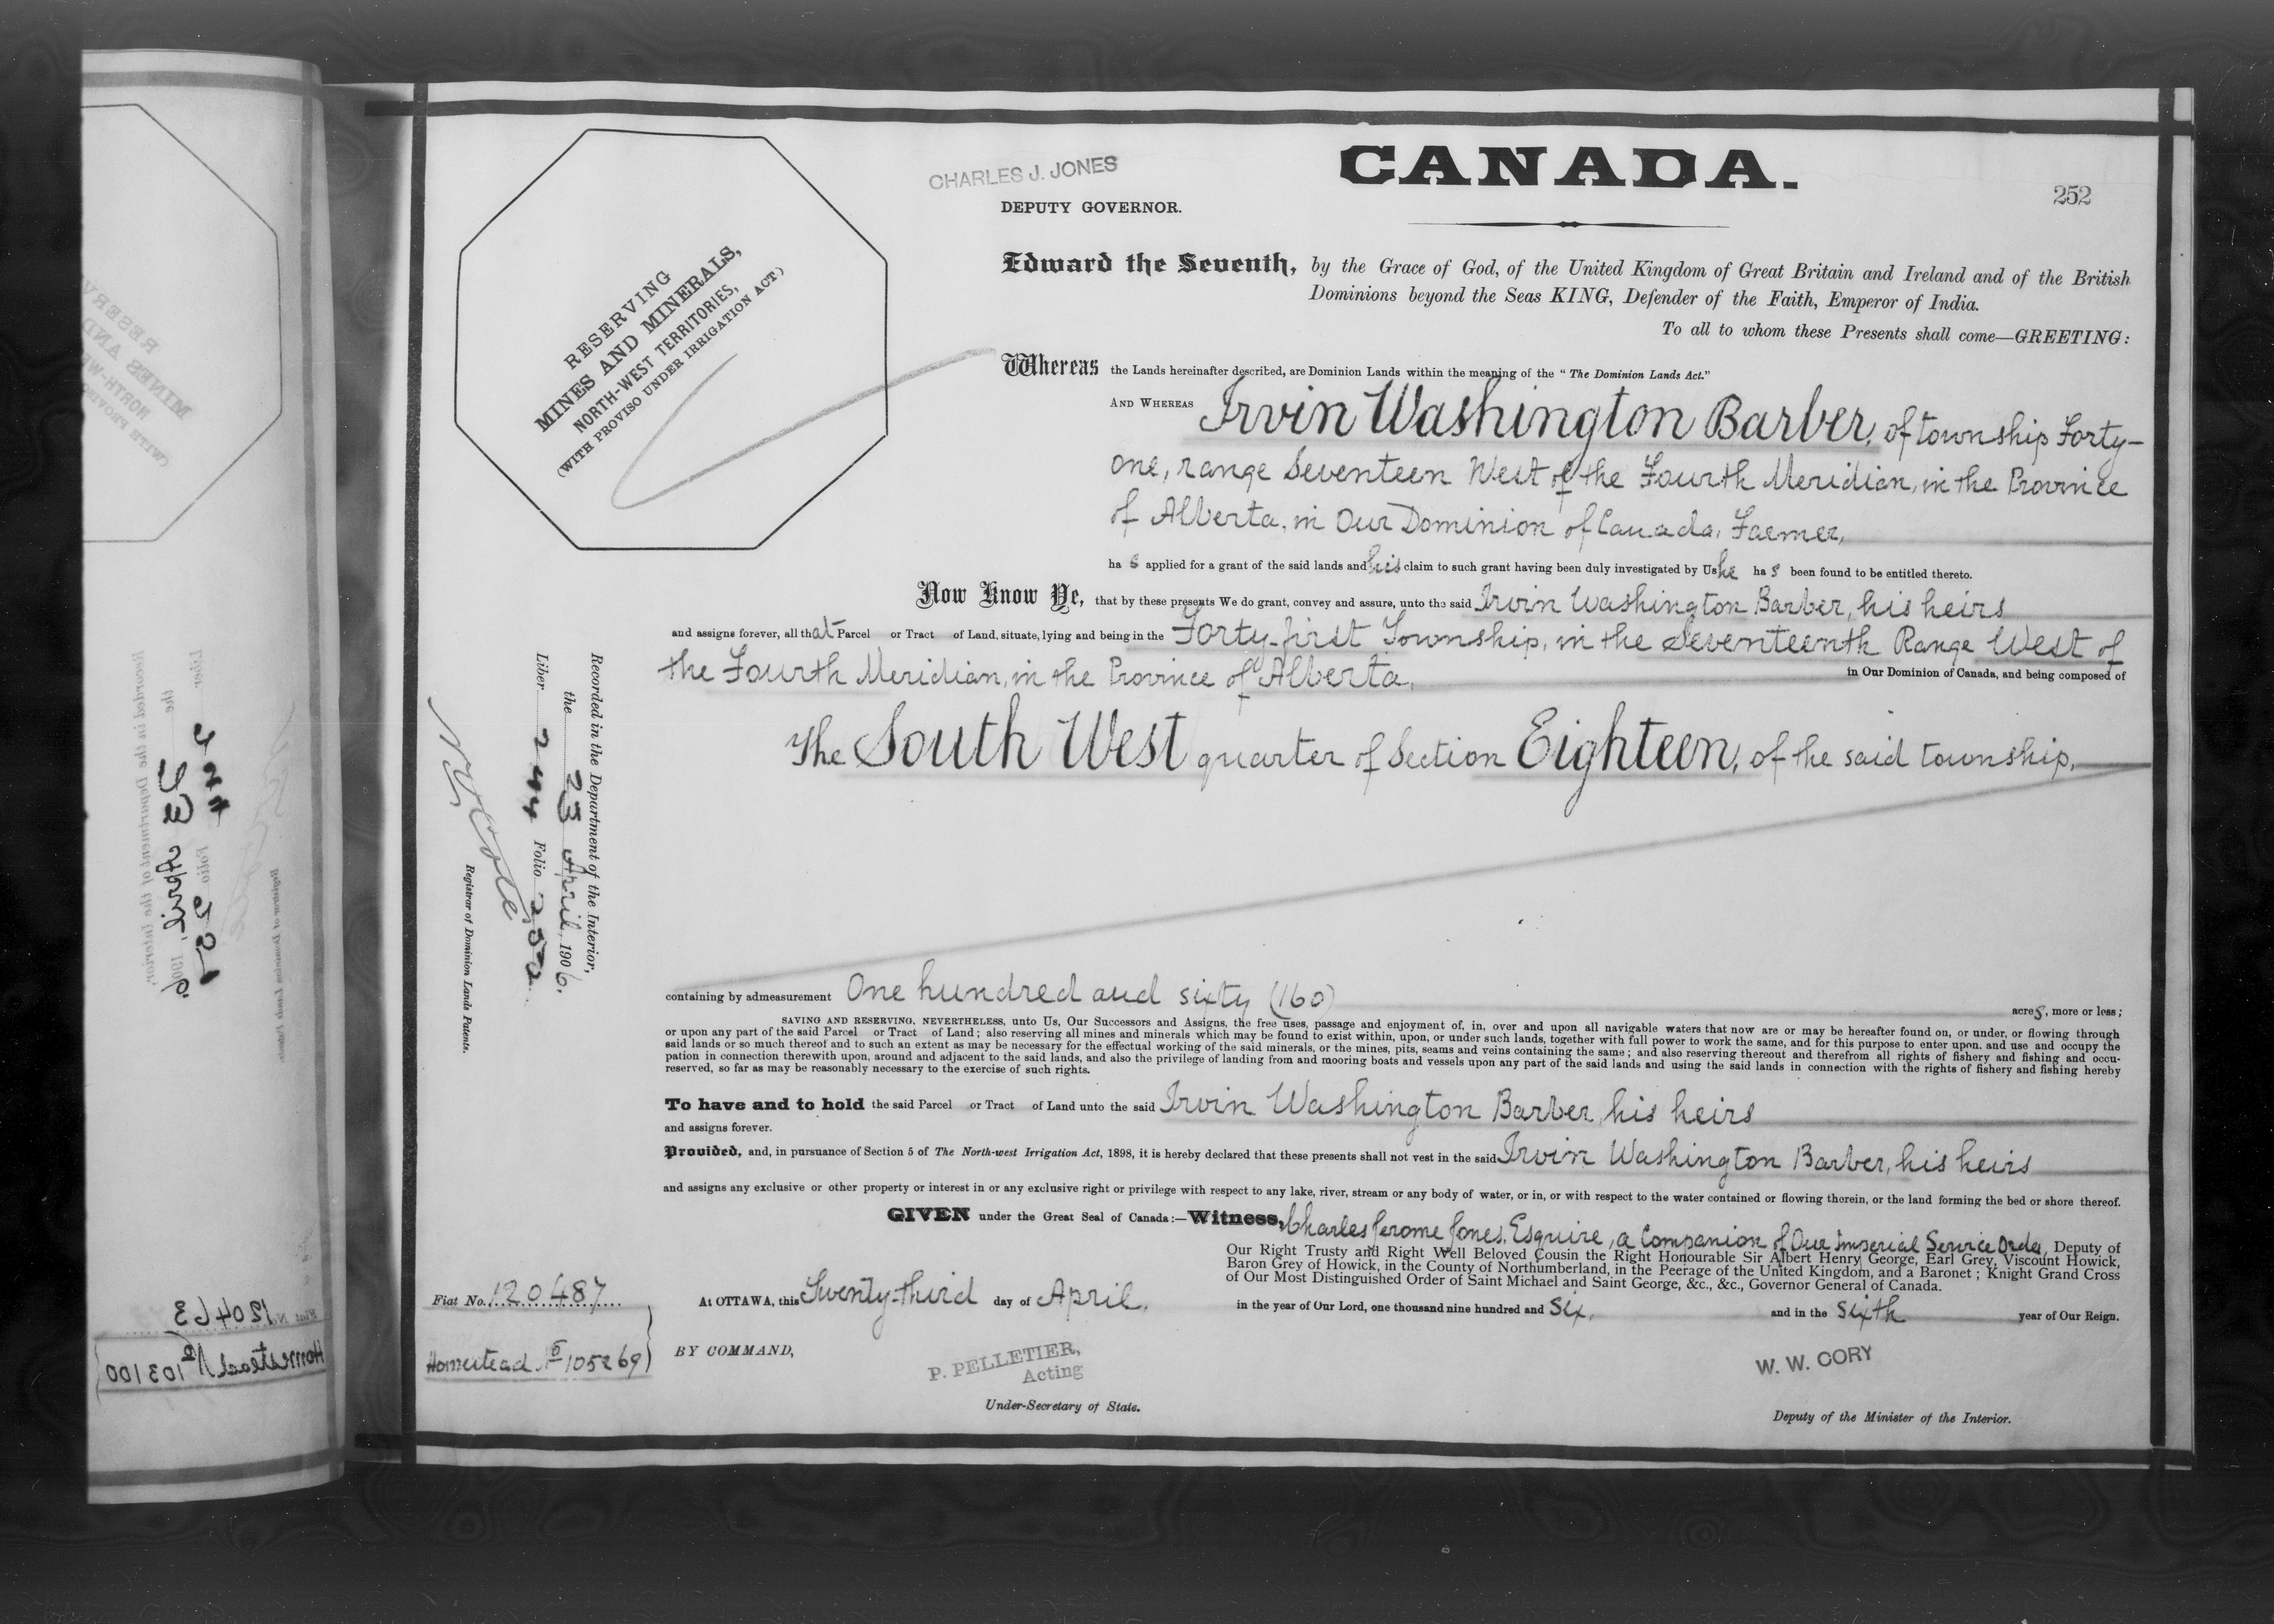 CHARLES J. JONES
DEPUTY GOVERNOR.
CANADA.
252
RESERVING
MINES AND MINERALS,
NORTH-WEST TERRITORIES,
(WITH PROVISO UNDER IRRIGATION ACT.)
Edward the Seventh, by the Grace of God, of the United Kingdom of Great Britain and Ireland and of the British
Dominions beyond the Seas KING, Defender of the Faith, Emperor of India.
To all to whom these Presents shall come—GREETING:
Whereas the Lands hereinafter described, are Dominion Lands within the meaning of the "The Dominion Lands Act."
AND WHEREAS Irvin Washington Barber, of township Forty-
one, range Seventeen West of the Fourth Meridian, in the Province
of Alberta, in Our Dominion of Canada, Farmer,
ha s applied for a grant of the said lands and his claim to such grant having been duly investigated by Us he ha s been found to be entitled thereto.
Now Know Ye, that by these presents We do grant, convey and assure, unto the said Irvin Washington Barber, his heirs
and assigns forever, all that Parcel or Tract of Land, situate, lying and being in the Forty-first Township, in the Seventeenth Range West of
the Fourth Meridian, in the Province of Alberta, in Our Dominion of Canada, and being composed of
The South West quarter of Section Eighteen, of the said township,
containing by admeasurement One hundred and sixty (160) acres, more or less;
SAVING AND RESERVING, NEVERTHELESS, unto Us, Our Successors and Assigns, the free uses, passage and enjoyment of, in, over and upon all navigable waters that now are or may be hereafter found on, or under, or flowing through
or upon any part of the said Parcel or Tract of Land; also reserving all mines and minerals which may be found to exist within, upon, or under such lands, together with full power to work the same, and for this purpose to enter upon, and use and occupy the
said lands or so much thereof and to such an extent as may be necessary for the effectual working of the said minerals, or the mines, pits, seams and veins containing the same; and also reserving thereout and therefrom all rights of fishery and fishing and occu-
pation in connection therewith upon, around and adjacent to the said lands, and also the privilege of landing from and mooring boats and vessels upon any part of the said lands and using the said lands in connection with the rights of fishery and fishing hereby
reserved, so far as may be reasonably necessary to the exercise of such rights.
To have and to hold the said Parcel or Tract of Land unto the said Irvin Washington Barber, his heirs
and assigns forever.
Provided, and, in pursuance of Section 5 of The North-west Irrigation Act, 1898, it is hereby declared that these presents shall not vest in the said Irvin Washington Barber, his heirs
and assigns any exclusive or other property or interest in or any exclusive right or privilege with respect to any lake, river, stream or any body of water, or in, or with respect to the water contained or flowing therein, or the land forming the bed or shore thereof.
GIVEN under the Great Seal of Canada:—Witness, Charles Jerome Jones, Esquire, a Companion of Our Imperial Service Order, Deputy of
Our Right Trusty and Right Well Beloved Cousin the Right Honourable Sir Albert Henry George, Earl Grey, Viscount Howick,
Baron Grey of Howick, in the County of Northumberland, in the Peerage of the United Kingdom, and a Baronet; Knight Grand Cross
of Our Most Distinguished Order of Saint Michael and Saint George, &c., &c., Governor General of Canada.
At OTTAWA, this Twenty-third day of April, in the year of Our Lord, one thousand nine hundred and six, and in the sixth year of Our Reign.
BY COMMAND,
P. PELLETIER,
Acting
Under-Secretary of State.
W. W. CORY
Deputy of the Minister of the Interior.
Fiat No. 120487
Homestead No 105269
Recorded in the Department of the Interior,
the 23 April, 1906.
Liber 244 Folio 252
Registrar of Dominion Lands Patents.
RESERV
MINES AND
NORTH-W
(WITH PROVISO
Recorded in the Department of the Interior,
the 23 April, 1906.
Liber 244 Folio 251
Registrar of Dominion Lands Patents.
Fiat No. 120463
Homestead No 103100